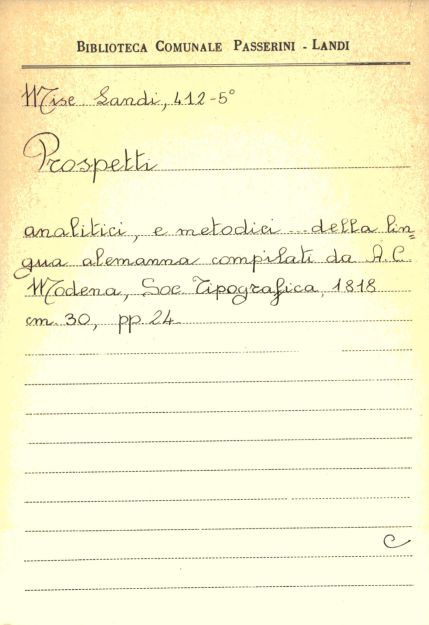 BIBLIOTECA COMUNALE PASSERINI - LANDI
Misc. Landi, 412-5°
Prospetti
analitici, e metodici ... della lin=
gua alemanna compilati da A. C.
Modena, Soc. Tipografica, 1818
cm. 30, pp. 24
C